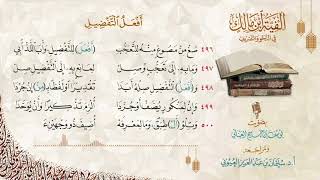 أَفْعَلُ التَّفْضِيلِ
أَلْفِيَّةُ ابْنِ مَالِكٍ
فِي النَّحْوِ وَالتَّصْرِيفِ
٤٩٦ صُغْ مِنْ مَصُوغٍ مِنْهُ لِلتَّعَجُّبِ (أَفْعَلَ) لِلتَّفْضِيلِ وَأْبَ اللَّذْ أُبِي
٤٩٧ وَمَا بِهِ إِلَى تَعَجُّبٍ وُصِلْ لِمَانِعٍ بِهِ إِلَى التَّفْضِيلِ صِلْ
٤٩٨ وَ(أَفْعَلَ) التَّفْضِيلِ صِلْهُ أَبَدَا تَقْدِيرًا أَوْ لَفْظًا بِـ(مِنْ) إِنْ جُرِّدَا
٤٩٩ وَإِنْ لِمَنْكُورٍ يُضَفْ أَوْ جُرِّدَا أُلْزِمَ تَذْكِيرًا وَأَنْ يُوَحَّدَا
٥٠٠ وَتِلْوُ (أَلْ) طِبْقٌ وَمَا لِمَعْرِفَهْ أُضِيفَ ذُو وَجْهَيْنِ
بصوت
ومراجعة
أ.د. سليمان بن عبد العزيز العيوني